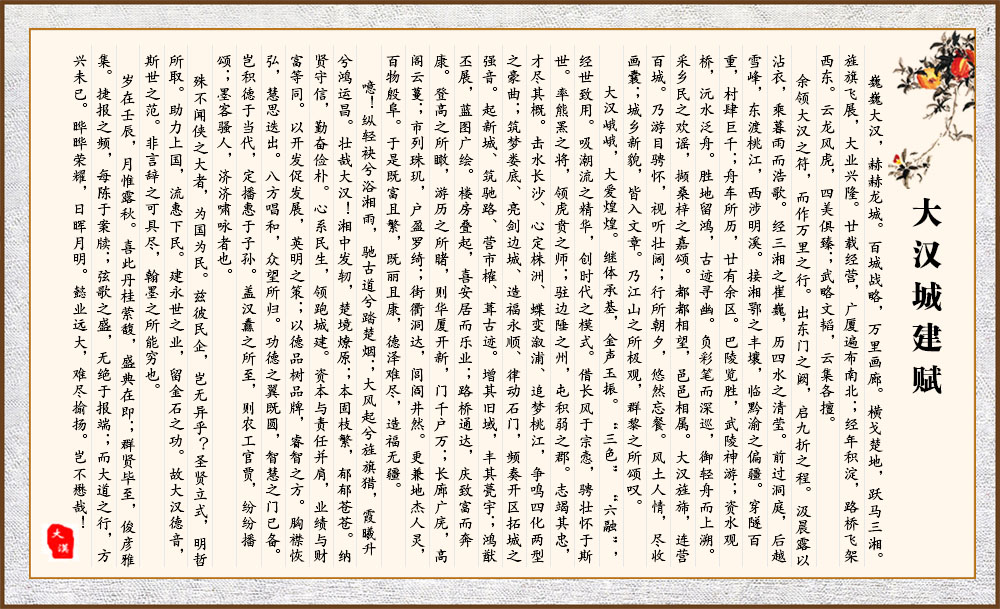 大汉城建赋
巍巍大汉，赫赫龙城。百城战略，万里画廊。横戈楚地，跃马三湘。
旌旗飞展，大业兴隆。廿载经营，广厦遍布南北；经年积淀，路桥飞架
西东。云龙风虎，四美俱臻；武略文韬，云集各擅。
余领大汉之符，而作万里之行。出东门之阙，启九折之程。汲晨露以
沾衣，乘暮雨而浩歌。经三湘之崔巍，历四水之清莹。前过洞庭，后越
雪峰，东渡桃江，西涉明溪。接湘鄂之丰壤，临黔渝之偏疆。穿隧百
重，村肆巨千；舟车所历，廿有余区。巴陵览胜，武陵神游；资水观
桥，沅水泛舟。胜地留鸿，古迹寻幽。负彩笔而深巡，御轻舟而上溯。
采乡民之欢谣，撷桑梓之嘉颂。都都相望，邑邑相属。大汉旌旆，连营
百城。乃游目骋怀，视听壮阔；行所朝夕，悠然忘餐。风土人情，尽收
画囊；城乡新貌，皆入文章。乃江山之所极观，群黎之所颂叹。
大汉峨峨，大爱煌煌。继体承基，金声玉振。“三色”“六融”，
经世致用。吸潮流之精华，创时代之模式。借长风于宗悫，骋壮怀于斯
世。率熊罴之将，领虎贲之师；驻边陲之州，屯积弱之郡。志竭其忠，
才尽其概。击水长沙、心定株洲、蝶变溆浦、追梦桃江，争鸣四化两型
之豪曲；筑梦娄底、亮剑边城、造福永顺、律动石门，频奏开区拓城之
强音。起新城、筑驰路、营市榷、葺古迹。增其旧城，丰其甍宇；鸿猷
丕展，蓝图广绘。楼房叠起，喜安居而乐业；路桥通达，庆致富而奔
康。登高之所瞰，游历之所睹，则华厦开新，门千户万；长廊广庑，高
阁云蔓；市列珠玑，户盈罗绮；街衢洞达，闾阎井然。更兼地杰人灵，
百物殷阜。于是既富且繁，既丽且康，德泽难尽，造福无疆。
噫！纵轻袂兮浴湘雨，驰古道兮踏楚烟；大风起兮旌旗猎，霞曦升
兮鸿运昌。壮哉大汉！湘中发轫，楚境燎原；本固枝繁，郁郁苍苍。纳
贤守信，勤奋俭朴。心系民生，领跑城建。资本与责任并肩，业绩与财
富等同。以开发促发展，英明之策；以德品树品牌，睿智之方。胸襟恢
弘，慧思迭出。八方唱和，众望所归。功德之翼既圆，智慧之门已备。
岂积德于当代，定播惠于子孙。盖汉纛之所至，则农工官贾，纷纷播
颂；墨客骚人，济济啸咏者也。
殊不闻侠之大者，为国为民。兹彼民企，岂无异乎？圣贤立式，明哲
所取。助力上国，流惠下民。建永世之业，留金石之功。故大汉德音，
斯世之范。非言辞之可具尽，翰墨之所能穷也。
岁在壬辰，月惟露秋。喜此丹桂萦馥，盛典在即；群贤毕至，俊彦雅
集。捷报之频，每陈于案牍；弦歌之盛，无绝于报端；而大道之行，方
兴未已。晔晔荣耀，日晖月明。懿业远大，难尽揄扬。岂不懋哉！
大汉